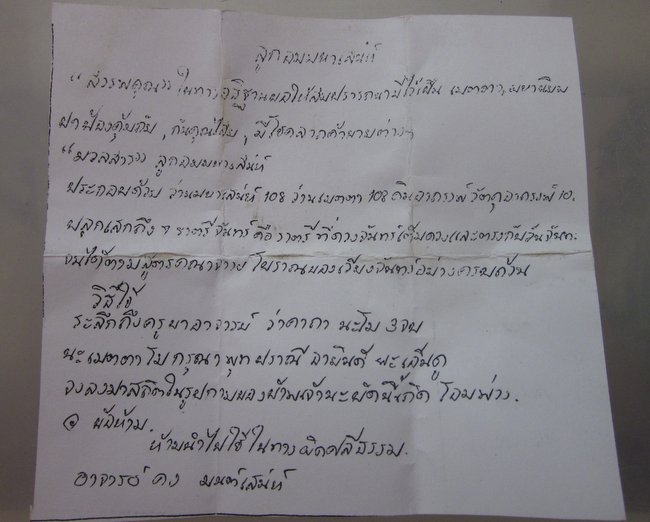 ลูกอมมหาเสน่ห์
"สรรพคุณ ในทางอธิฐานผลให้สมปรารถนามีไว้เป็น เมตตา, มหานิยม
ป้องคุ้มกัน, กันคุณไสย, มีโชคลาภค้าขายต่างๆ
"มวลสาร ลูกอมมหาเสน่ห์
ประกอบด้วย ว่านมหาเสน่ห์ 108 ว่านเมตตา 108 ดินอาถรรพ์ วัตถุอาถรรพ์ 10.
ปลุกเสกถึง ๆ ราตรีจันทร์ คือราตรีที่ดวงจันทร์เต็มดวงและตรงกับวันจันทร์
จนได้ตามสูตรคณาจารย์โบราณของเวียงจันทร์อย่างครบด้าน
วิธีใช้
ระลึกถึงครูบาอาจารย์ ว่าคาถา นะโม 3 จบ
นะเมตตา โมกรุณา พุทปราณี ธายินดี ยะเอ็นดู
จงลงมาสถิตในรูปกายของข้าพเจ้านะบัดนี้เถิด โอมพ่าง.
๏ ข้อห้าม.
ห้ามนำไปใช้ในทางผิดศีลธรรม.
อาจารย์ คง มนต์เสน่ห์